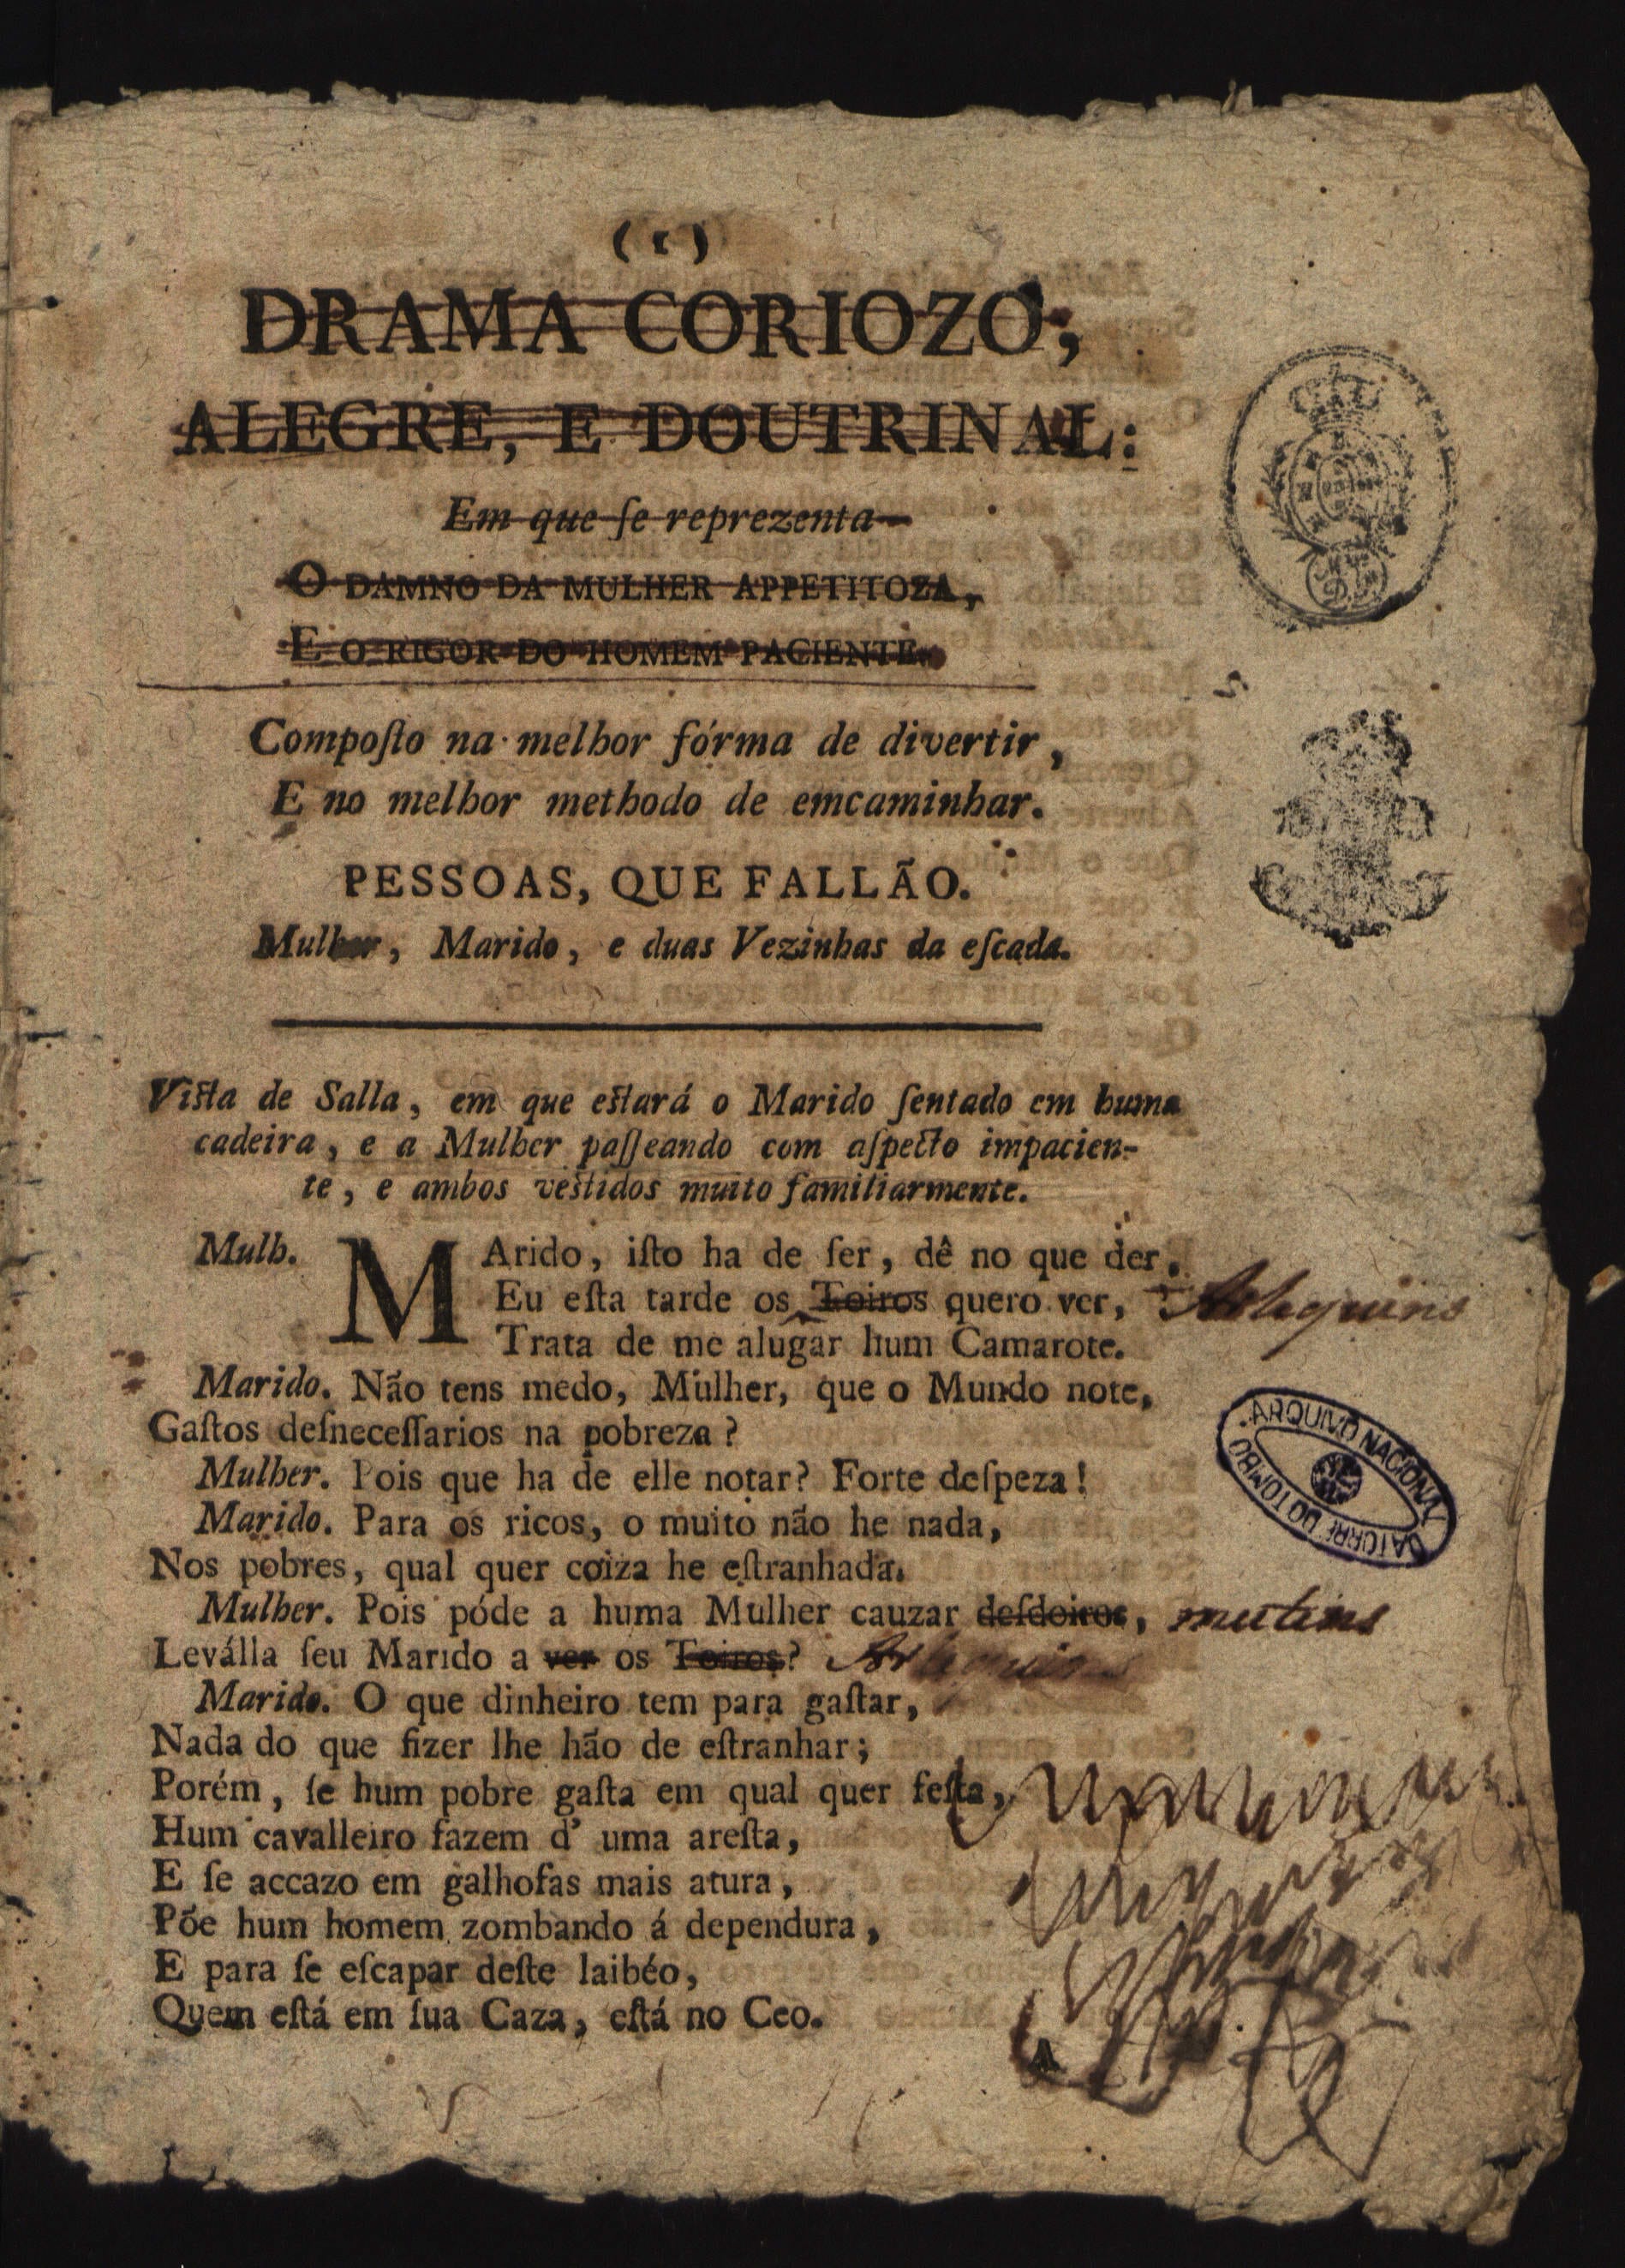 (1)
DRAMA CORIOZO,
ALEGRE, E DOUTRINAL:
Em que ſe reprezenta
O DAMNO DA MULHER APPETITOZA,
E O RIGOR DO HOMEM PACIENTE.
Compoſto na melhor fórma de divertir,
E no melhor methodo de emcaminhar.
PESSOAS, QUE FALLÃO.
Mulher, Marido, e duas Vezinhas da eſcada.
Viſta de Salla, em que eſtará o Marido ſentado em huma
cadeira, e a Mulher paſſeando com aſpecto impacien-
te, e ambos veſtidos muito familiarmente.
Mulh. MArido, iſto ha de ſer, dê no que der,
Eu eſta tarde os Toiros quero ver, Arlequins
Trata de me alugar hum Camarote.
Marido. Não tens medo, Mulher, que o Mundo note,
Gaſtos deſneceſſarios na pobreza?
Mulher. Pois que ha de elle notar? Forte deſpeza!
Marido. Para os ricos, o muito não he nada,
Nos pobres, qual quer coiza he eſtranhada.
Mulher. Pois póde a huma Mulher cauzar deſdoiros, mutins
Leválla ſeu Marido a ver os Toiros? Arlequins
Marido. O que dinheiro tem para gaſtar,
Nada do que fizer lhe hão de eſtranhar;
Porém, ſe hum pobre gaſta em qual quer feſta,
Hum cavalleiro fazem d' uma areſta,
E ſe accazo em galhofas mais atura,
Põe hum homem zombando á dependura,
E para ſe eſcapar deſte laibéo,
Quem eſtá em ſua Caza, eſtá no Ceo.
A
ARQUIVO NACIONAL
DA TORRE DO TOMBO